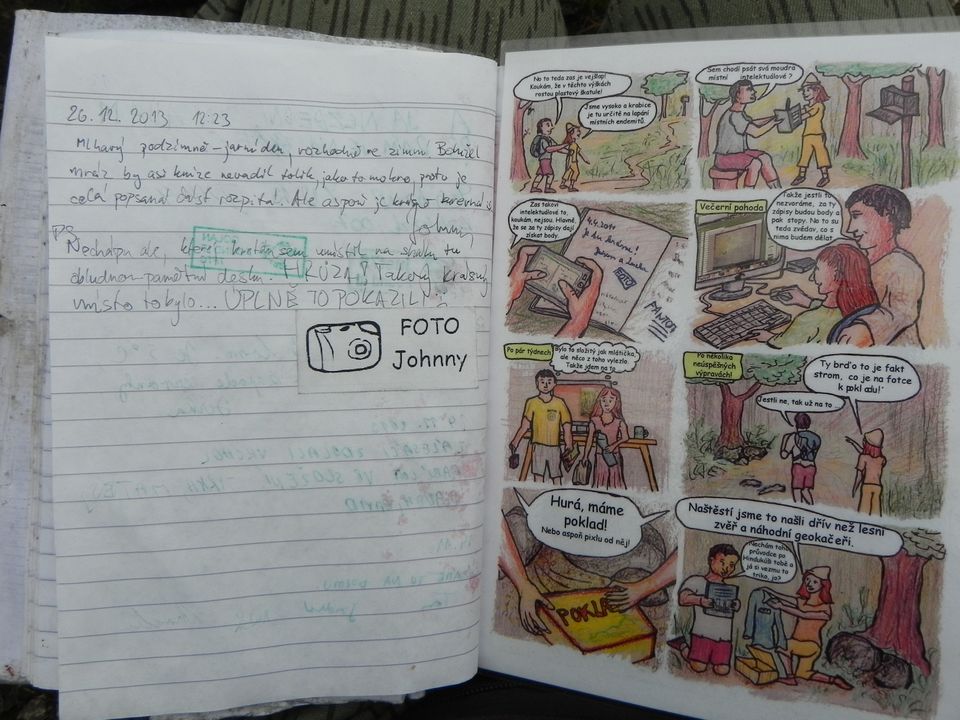 26. 12. 2013 12:23
Mlhavý podzimně-jarní den, rozhodně ne zimní. Bohužel
mráz by asi knize nevadil tolik, jako to mokro, proto je
celá popsaná část rozpitá! Ale aspoň je krásně barevná
Johnny
PS
Nechápu ale, který kretén sem umístil na skálu tu
obludnou pamětní desku. HRŮZA! Takový krásný
místo to bylo... ÚPLNĚ TO POKAZILI
FOTO
Johnny
No to teda zas je vejšlap!
Koukám, že v těchto výškách
rostou plastový škatule!
Jsme vysoko a krabice
je tu určitě na lapání
místních endemitů.
Sem chodí psát svá moudra
místní intelektuálové ?
Zas takoví
intelektuálové to,
koukám, nejsou. Hlavně
že se za ty zápisy dají
získat body.
4.4.2011
FOTO
PANTOB
Večerní pohoda
Takže jestli to
nezvoráme, za ty
zápisy budou body a
pak stopy. No to su
teda zvědav, co s
nima budem dělat
Po pár týdnech
Bylo to složitý jak mlátička,
ale něco z toho vylezlo.
Takže jdem na to
Po několika
neúspěšných
výpravách!
Jestli ne, tak už na to ...
Ty brďo to je fakt
strom, co je na fotce
k pokladu!
Hurá, máme
poklad!
Nebo aspoň pixlu od něj!
POKLAD
Naštěstí jsme to našli dřív než lesní
zvěř a náhodní geokačeři.
Nechám toho
průvodce po
Hindúkúši tobě a
já si vezmu to
triko, jo?